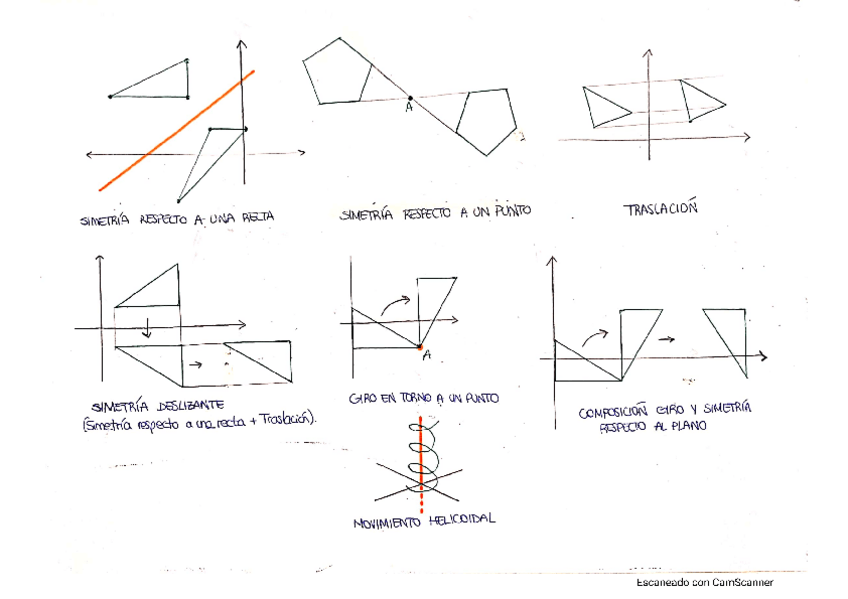 A
SIMETRÍA RESPECTO A UNA RECTA
SIMETRÍA RESPECTO A UN PUNTO
TRASLACIÓN
A
SIMETRÍA DESLIZANTE
(Simetría respecto a una recta + Traslación).
GIRO EN TORNO A UN PUNTO
COMPOSICIÓN GIRO Y SIMETRÍA
RESPECTO AL PLANO
MOVIMIENTO HELICOIDAL
Escaneado con CamScanner